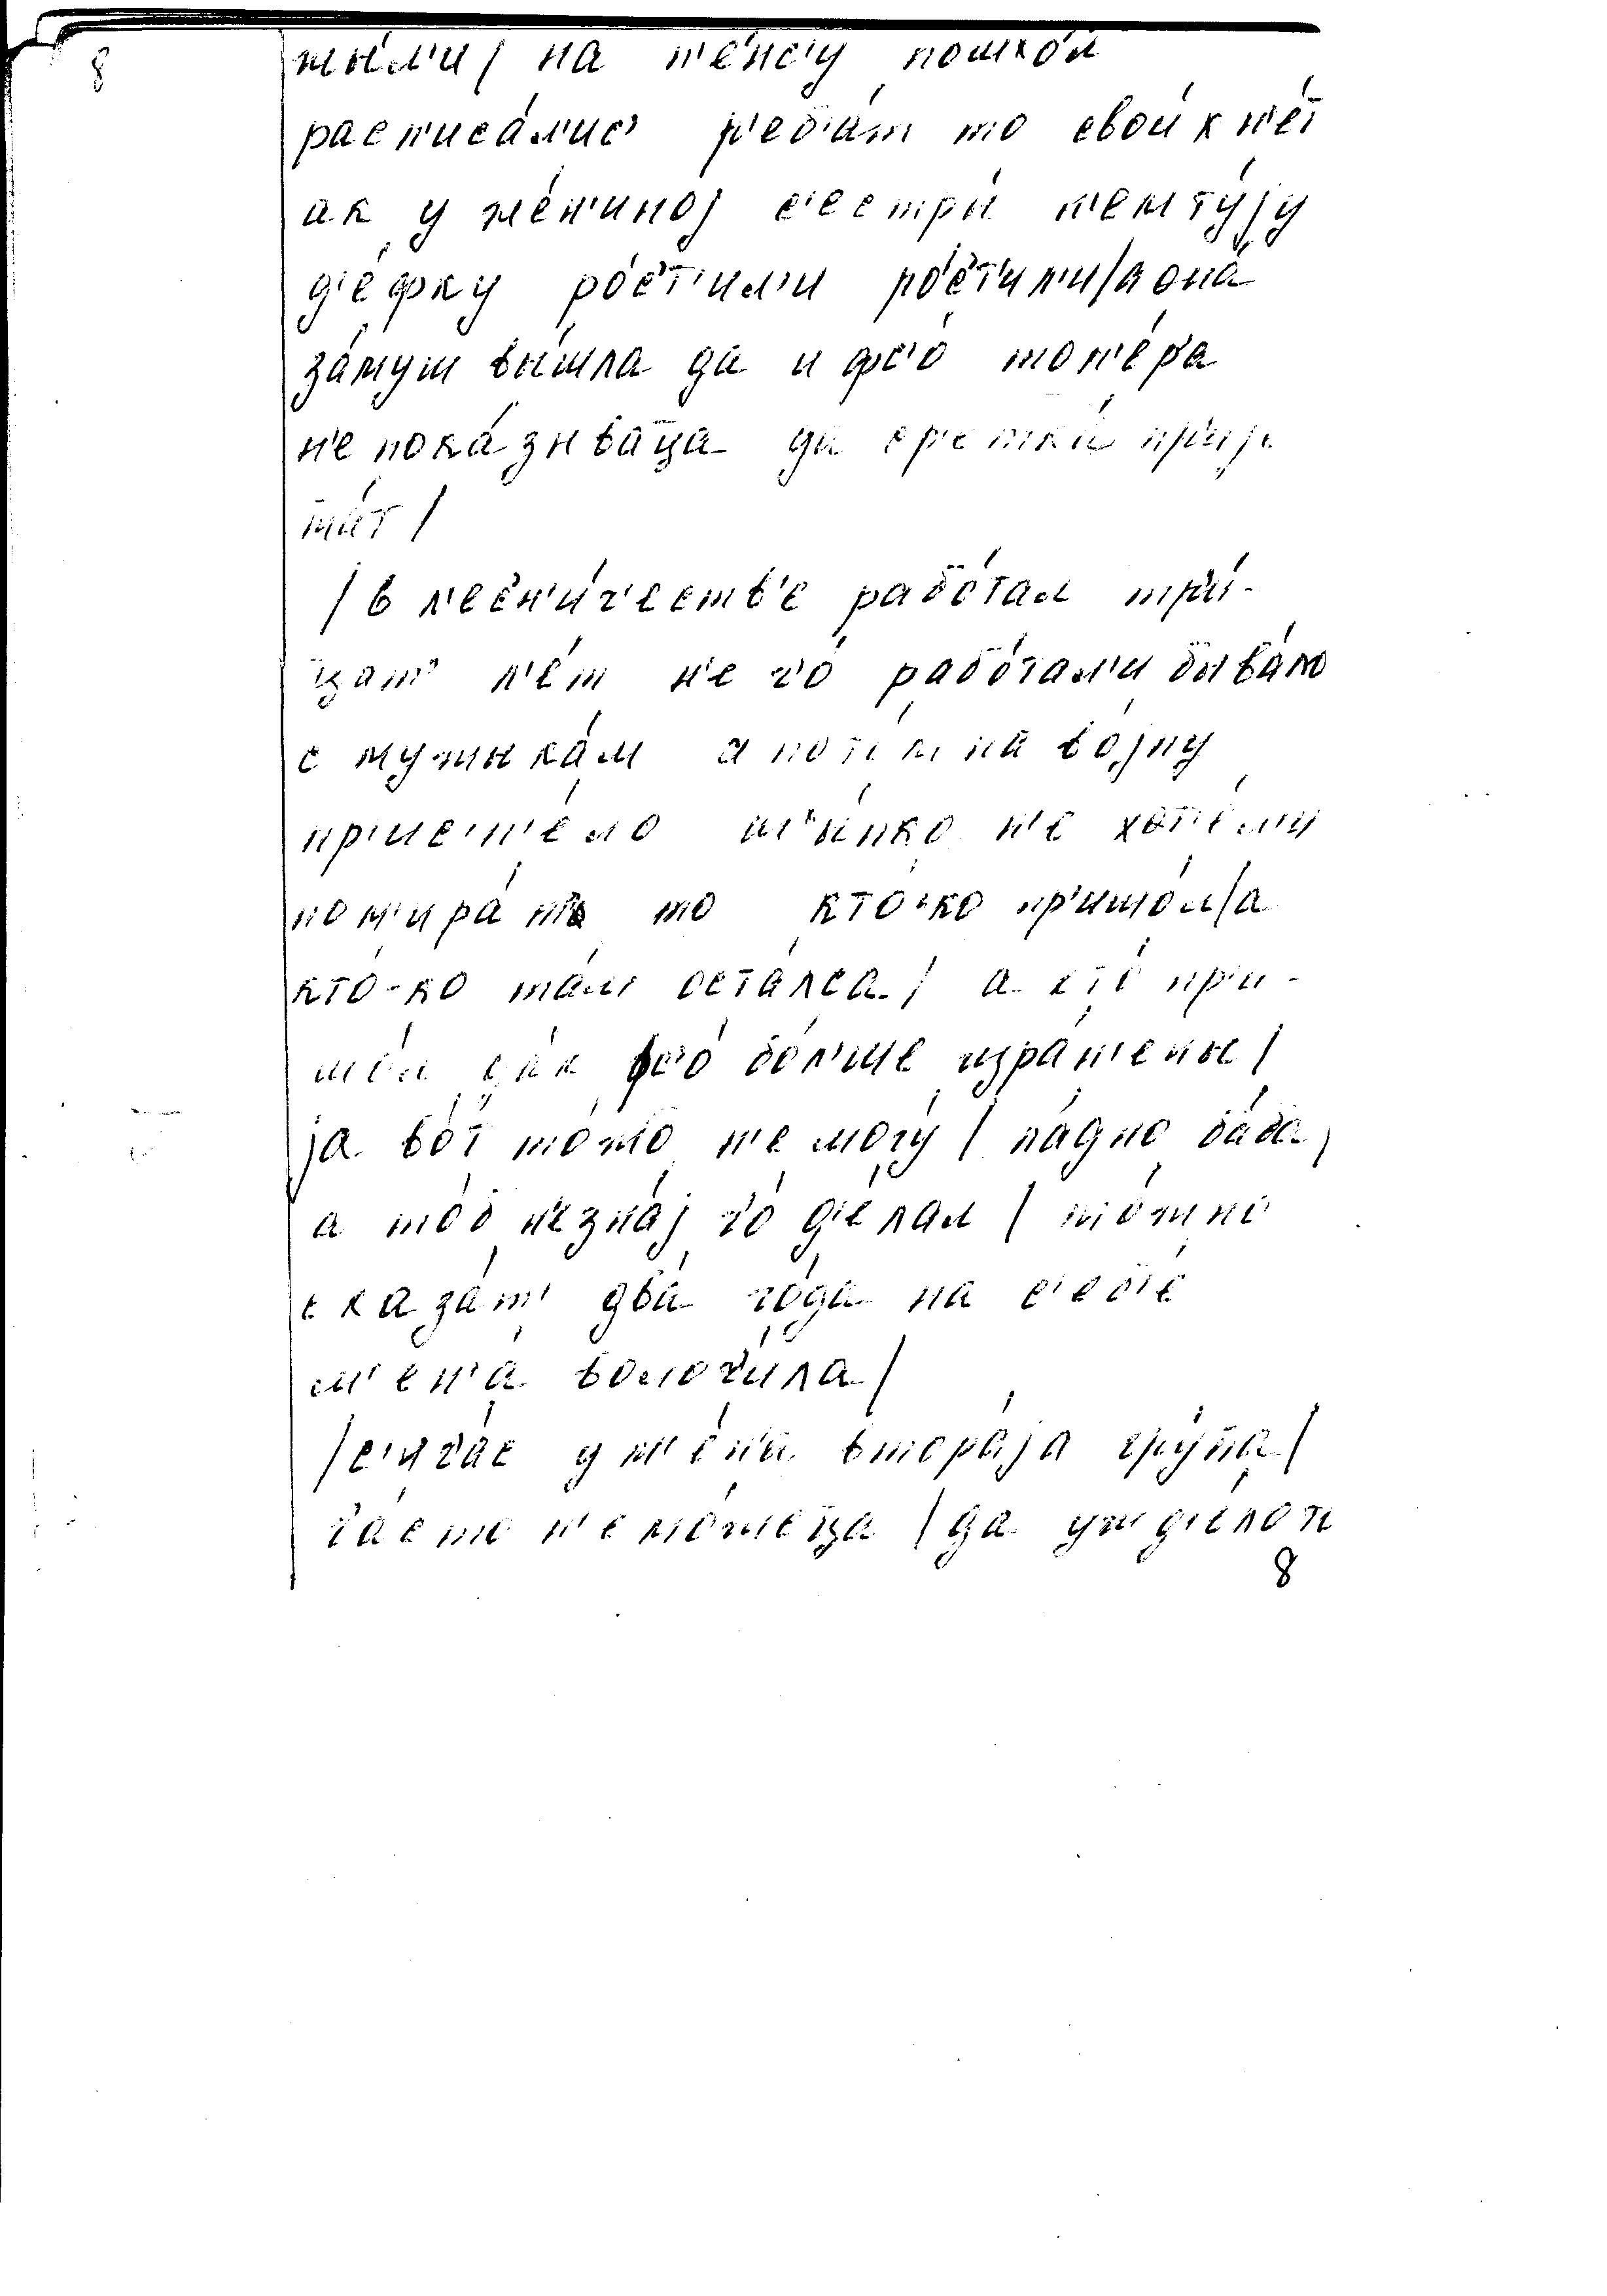 8
жы́л'и / на п'е́нс'у пошо́л
расп'иса́л'ис' р'еб'а́т то свои́х н'е́т
ак у же́н'иној с'естры́ п'емту́ју
д'е́фку ро́ст'ил'и ро́ст'ил'и / а она́
за́муш вы́шла да и фс'о́ топ'е́р'а
н'е пока́зываца да
/ в л'есн'и́ч'еств'е рабо́тал три́-
цат' л'е́т н'е ч'о́ рабо́тал'и быва́ло
с мужыка́м а пото́м на војну́
присп'е́ло н'е хот'е́л'и
пом'ира́т' то кто́-ко пр'ишо́л / а
кто́-ко та́м оста́лса / а хто́ пр'и-
шо́л да́к фс'о́ бо́л'ше израњены /
ја во́т то́жо н'е могу́ / ла́дно ба́ба,
а то́б н'е зна́ј ч'о́ д'е́лал / мо́жно
сказа́т' два́ го́да на с'еб'е́
м'ен'а́ волоч'и́ла /
/ с'ич'а́с у м'ен'а́ втора́ја гру́па /
ч'а́сто н'емо́жеца / да уж д'е́ло ж
8